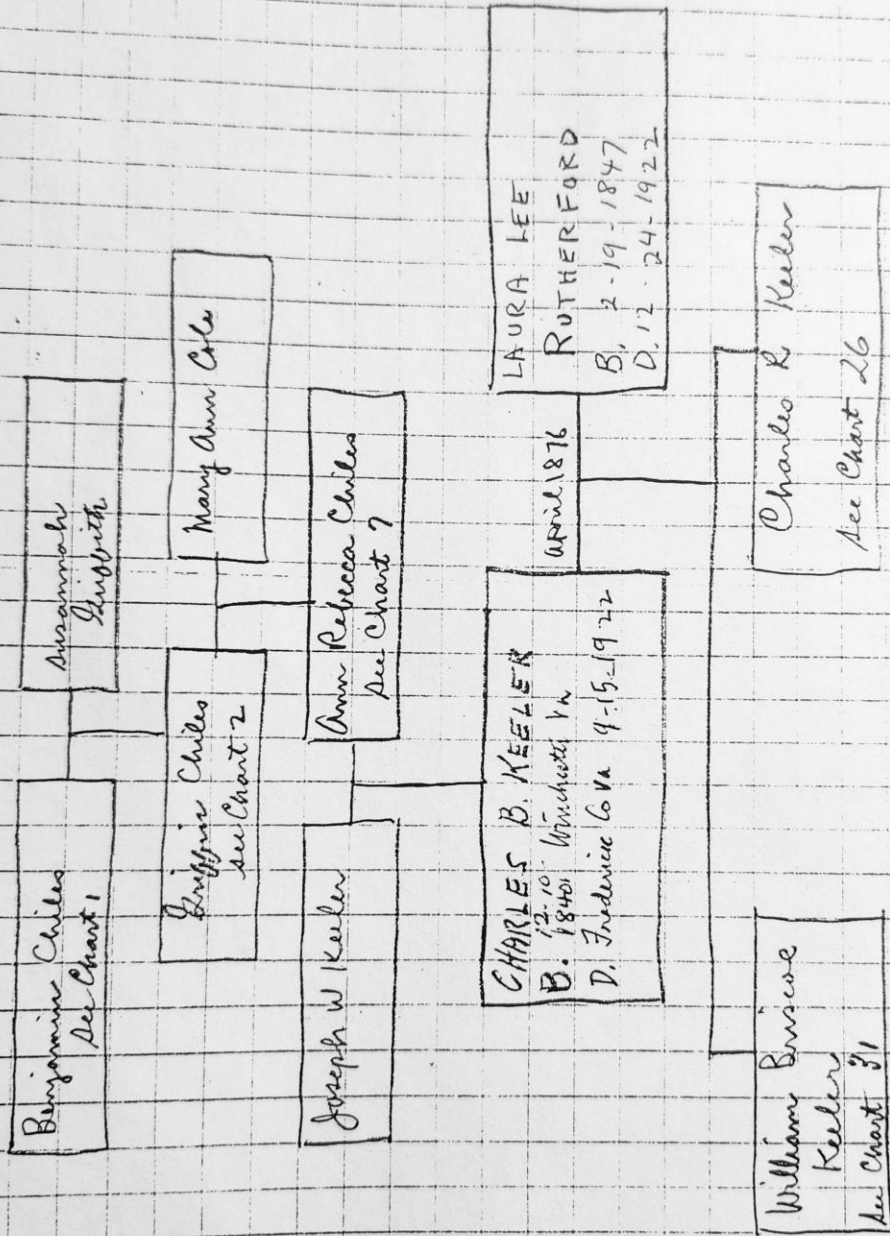 Benjamin Chiles
See Chart 1
Susannah
Griffith
Griffin Chiles
See Chart 2
Mary Ann Cole
Joseph W Keeler
Ann Rebecca Chiles
See Chart 7
CHARLES B. KEELER
B. 12-10-1840 Winchester Va
D. Frederick Co Va 9-15-1922
April 1876
LAURA LEE
RUTHERFORD
B. 2-19-1847
D. 12-24-1922
William Briscoe
Keeler
See Chart 31
Charles R Keeler
See Chart 26